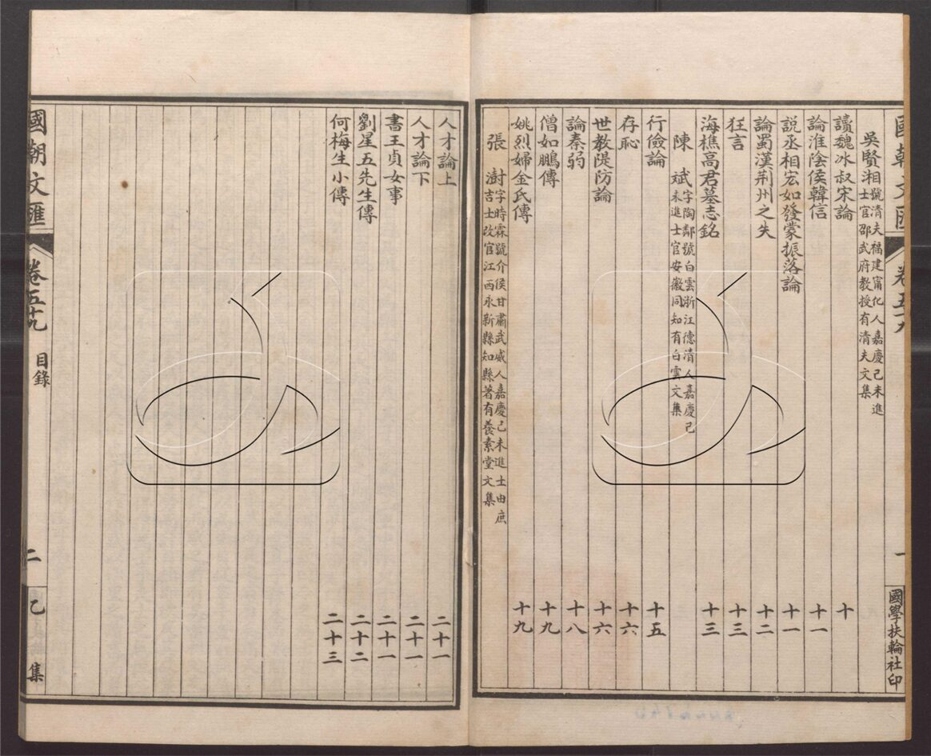 國朝文匯 卷五十九 一 國學扶輪社印
吳賢湘 號清夫福建甯化人嘉慶己未進
士官邵武府教授有清夫文集
讀魏冰叔宋論 十
論淮陰侯韓信 十一
說丞相宏如發蒙振落論 十一
論蜀漢荊州之失 十二
狂言 十三
海樵高君墓志銘 十三
陳斌 字陶鄰號白雲浙江德清人嘉慶己
未進士官安徽同知有白雲文集
行儉論 十五
存恥 十六
世教隄防論 十六
論秦弱 十八
僧如鵬傳 十九
姚烈婦金氏傳 十九
張澍 字時霖號介侯甘肅武威人嘉慶己未進士由庶
吉士改官江西永新縣知縣著有養素堂文集
人才論上 二十一
人才論下 二十一
書王貞女事 二十一
劉星五先生傳 二十二
何梅生小傳 二十三
國朝文匯 卷五十九 目錄 二 乙集